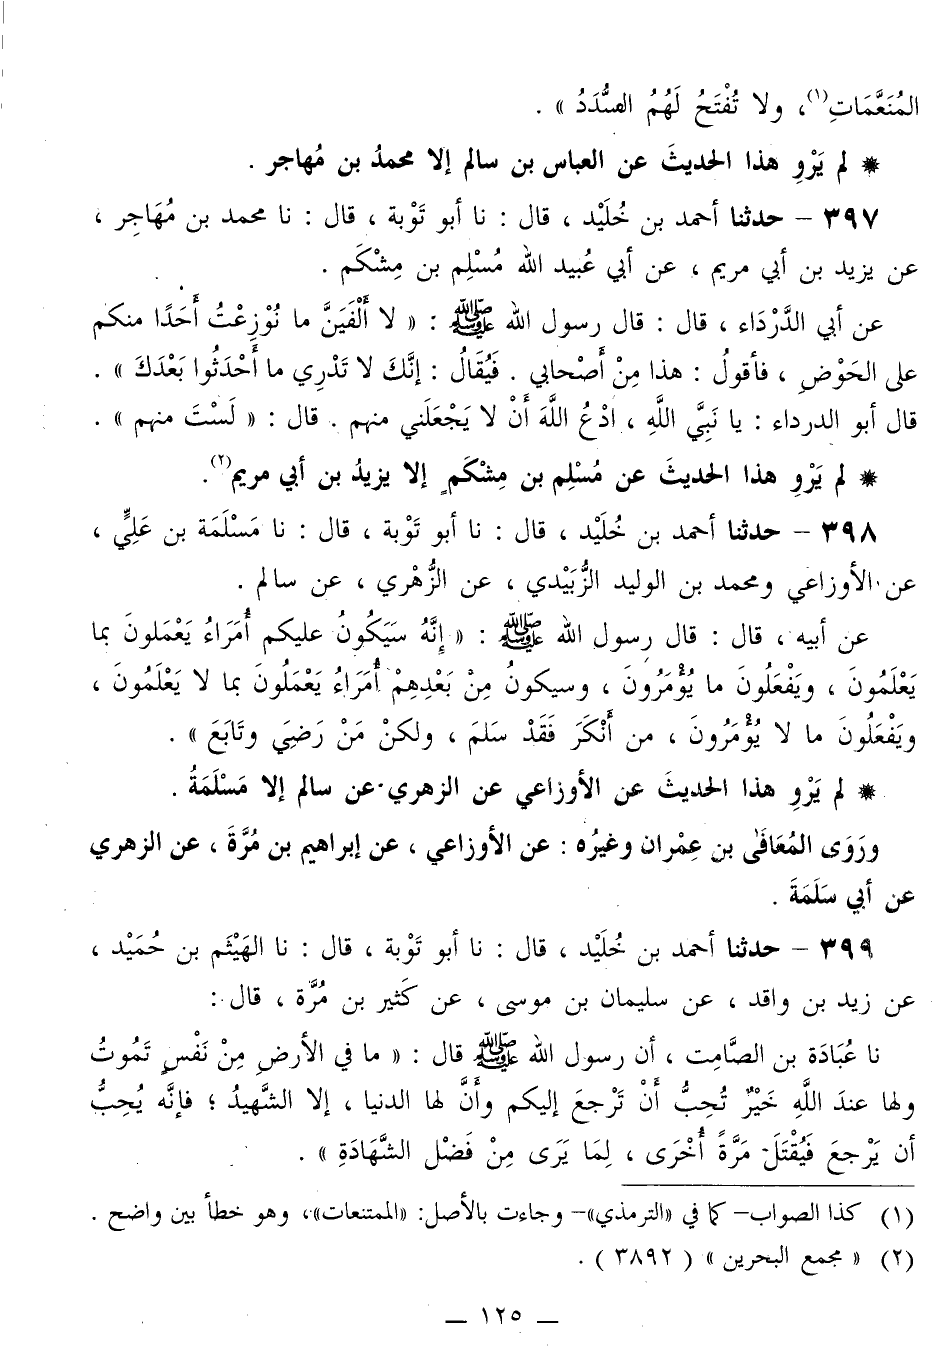 المُنَعَّمَاتِ(١)، ولا تُفْتَحُ لَهُمُ السُّدَدُ » .
* لم يَرْوِ هذا الحديثَ عن العباس بن سالم إلا محمدُ بن مُهاجر .
٣٩٧ – حدثنا أحمد بن خُلَيْد ، قال : نا أبو تَوْبة ، قال : نا محمد بن مُهَاجِر ،
عن يزيد بن أبي مريم ، عن أبي عُبيد الله مُسْلِم بن مِشْكَم .
عن أبي الدَّرْدَاء ، قال : قال رسول الله ﷺ : « لا أَلْفَيَنَّ ما نُوْزِعْتُ أَحَدًا منكم
على الحَوْضِ ، فأقولُ : هذا مِنْ أَصْحابي . فَيُقَالُ : إنَّكَ لا تَدْرِي ما أَحْدَثُوا بَعْدَكَ » .
قال أبو الدرداء : يا نَبِيَّ اللَّهِ ، ادْعُ اللَّهَ أَنْ لا يَجْعَلَني منهم . قال : « لَسْتَ منهم » .
* لم يَرْوِ هذا الحديثَ عن مُسْلِم بن مِشْكَمٍ إلا يزيدُ بن أبي مريم(٢).
٣٩٨ – حدثنا أحمد بن خُلَيْد ، قال : نا أبو تَوْبة ، قال : نا مَسْلَمَة بن عَلِيٍّ ،
عن الأوزاعي ومحمد بن الوليد الزُّبَيْدي ، عن الزُّهْري ، عن سالم .
عن أبيه ، قال : قال رسول الله ﷺ : « إِنَّهُ سَيَكُونُ عليكم أُمَرَاءُ يَعْمَلونَ بما
يَعْلَمُونَ ، ويَفْعَلُونَ ما يُؤْمَرُونَ ، وسيكونُ مِنْ بَعْدِهِمْ أُمَرَاءُ يَعْمَلُونَ بما لا يَعْلَمُونَ ،
ويَفْعَلُونَ ما لا يُؤْمَرُونَ ، من أَنْكَرَ فَقَدْ سَلمَ ، ولكنْ مَنْ رَضِيَ وتَابَعَ » .
* لم يَرْوِ هذا الحديثَ عن الأوزاعي عن الزهري عن سالم إلا مَسْلَمَةُ .
ورَوَى المُعَافَى بن عِمْران وغيرُه : عن الأوزاعي ، عن إبراهيم بن مُرَّةَ ، عن الزهري
عن أبي سَلَمَةَ .
٣٩٩ – حدثنا أحمد بن خُلَيْد ، قال : نا أبو تَوْبة ، قال : نا الهَيْثَم بن حُمَيْد ،
عن زيد بن واقد ، عن سليمان بن موسى ، عن كَثير بن مُرَّة ، قال :
نا عُبَادَة بن الصَّامِت ، أن رسول الله ﷺ قال : « ما في الأرضِ مِنْ نَفْسٍ تَمُوتُ
ولها عندَ اللَّهِ خَيْرٌ تُحِبُّ أَنْ تَرْجعَ إليكم وأَنَّ لها الدنيا ، إلا الشَّهيدُ ؛ فإنَّه يُحِبُّ
أن يَرْجعَ فَيُقْتَلَ مَرَّةً أُخْرَى ، لِمَا يَرَى مِنْ فَضْل الشَّهَادَةِ » .
(١) كذا الصواب– كما في «الترمذي»– وجاءت بالأصل: «الممتنعات»، وهو خطأ بين واضح .
(٢) « مجمع البحرين » ( ٣٨٩٢ ) .
— ١٢٥ —